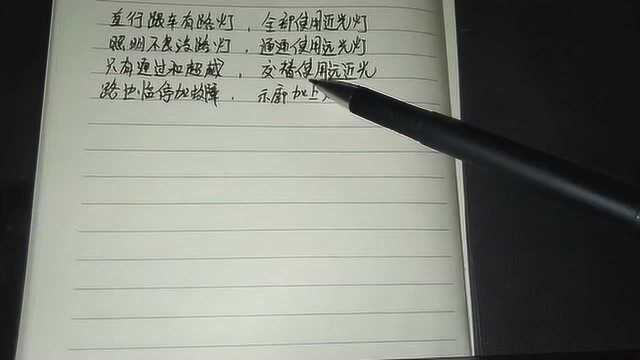 直行跟车有路灯，全部使用近光灯
照明不良没路灯，通通使用远光灯
只有通过和超越，交替使用远近光
路边临停加故障，示廓加上